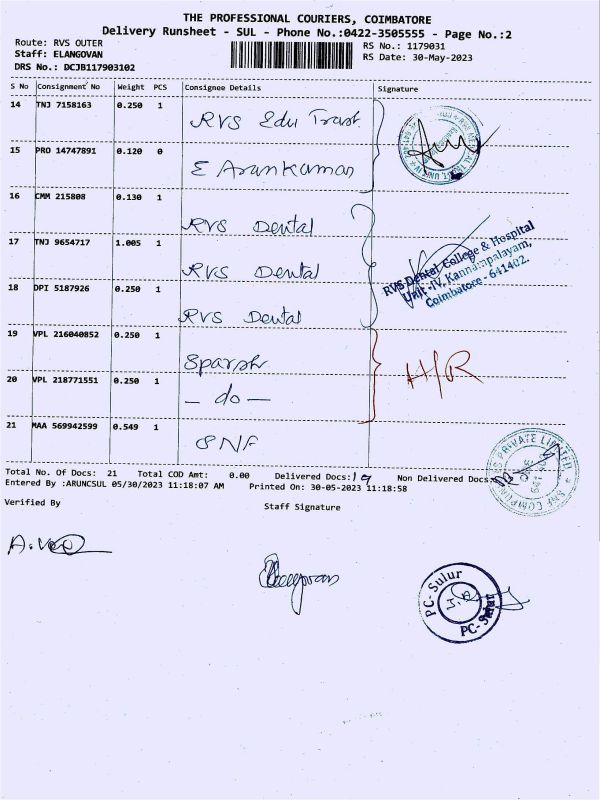 THE PROFESSIONAL COURIERS, COIMBATORE
Delivery Runsheet - SUL - Phone No.:0422-3505555 - Page No.:2
Route: RVS OUTER
RS No.: 1179031
Staff: ELANGOVAN
RS Date: 30-May-2023
DRS No.: DCJB117903102
S No Consignment No Weight PCS Consignee Details Signature
14 TNJ 7158163 0.250 1 RVS Edu Trust.
15 PRO 14747891 0.120 0 E Arankumar
16 CMM 215808 0.130 1 RVS Dental
17 TNJ 9654717 1.005 1 RVS Dental
RVS Dental College & Hospital
Unit -IV, Kannampalayam,
Coimbatore - 641402.
18 DPI 5187926 0.250 1 RVS Dental
19 VPL 216040852 0.250 1 Sparsh
H/R
20 VPL 218771551 0.250 1 - do -
21 MAA 569942599 0.549 1 SNF
PRIVATE LIMITED
Total No. Of Docs: 21 Total COD Amt: 0.00 Delivered Docs: 19 Non Delivered Docs:
Entered By :ARUNCSUL 05/30/2023 11:18:07 AM Printed On: 30-05-2023 11:18:58
Verified By Staff Signature
PC-Sulur
PC-Sulur